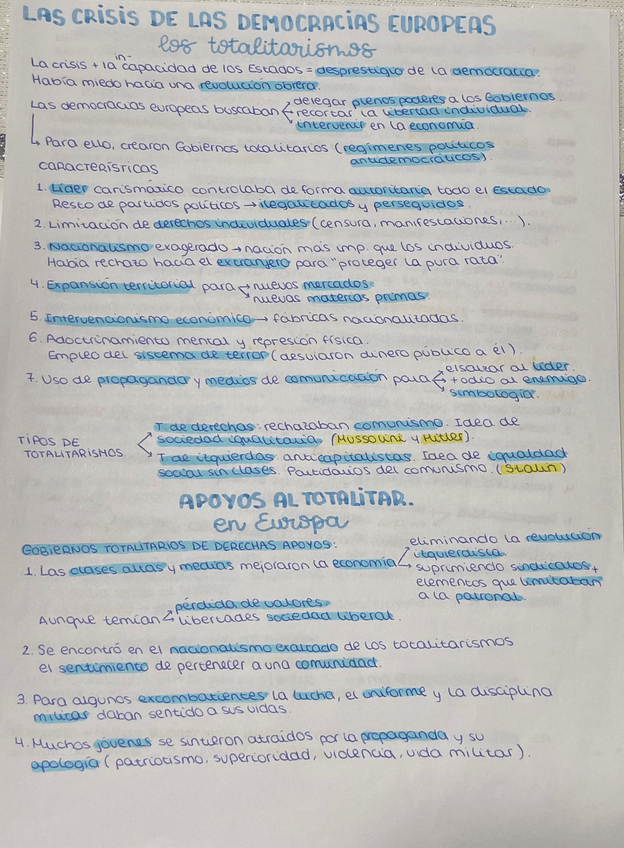 LAS CRISIS DE LAS DEMOCRACIAS EUROPEAS
los totalitarismos
La crisis + la in-capacidad de los Estados = desprestigio de la democracia.
Había miedo hacia una revolución obrera.
Las democracias europeas buscaban
delegar plenos poderes a los Gobiernos.
recortar la libertad individual.
intervenir en la economía.
↳ Para ello, crearon Gobiernos totalitarios (regímenes políticos
antidemocráticos).
CARACTERÍSTICAS
1. Líder carismático controlaba de forma autoritaria todo el Estado
Resto de partidos políticos → ilegalizados y perseguidos.
2. Limitación de derechos individuales (censura, manifestaciones, ...).
3. Nacionalismo exagerado → nación más imp. que los individuos.
Había rechazo hacia el extranjero para "proteger la pura rata"
4. Expansión territorial para → nuevos mercados.
nuevas materias primas.
5. Intervencionismo económico → fábricas nacionalizadas.
6. Adoctrinamiento mental y represión física.
Empleo del sistema de terror (desviaron dinero público a él).
7. Uso de propaganda y medios de comunicación para
elsaltar al líder.
+ odio al enemigo.
simbología.
TIPOS DE
TOTALITARISMOS
T de derechas: rechazaban comunismo. Idea de
sociedad igualitaria (Mussolini y Hitler).
T de izquierdas: anticapitalistas. Idea de igualdad
social sin clases. Partidarios del comunismo. (Stalin)
APOYOS AL TOTALITAR.
en Europa
GOBIERNOS TOTALITARIOS DE DERECHAS APOYOS:
1. Las clases altas y medias mejoraron la economía
eliminando la revolución
izquierdista.
suprimiendo sindicatos +
elementos que limitaban
a la patronal.
Aunque temían
pérdida de valores.
libertades sociedad liberal.
2. Se encontró en el nacionalismo exaltado de los totalitarismos
el sentimiento de pertenecer a una comunidad.
3. Para algunos excombatientes la lucha, el uniforme y la disciplina
militar daban sentido a sus vidas.
4. Muchos jóvenes se sintieron atraídos por la propaganda y su
apología (patriotismo, superioridad, violencia, vida militar).